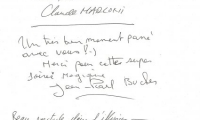 Claude MARCONI
Un très bon moment passé
avec vous !-)
Merci pour cette super
soirée magique
Jean-Paul Bucher
Beau spectacle dans l'